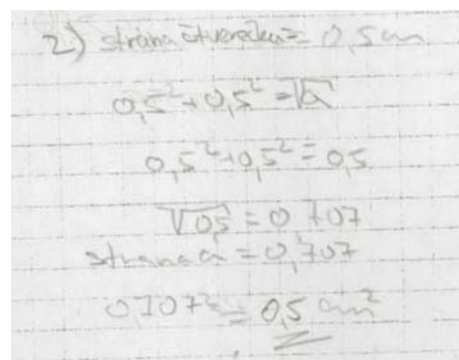 2) strana čtverečku = 0,5 cm
0,5² + 0,5² = √a
0,5² + 0,5² = 0,5
√0,5 = 0,707
strana a = 0,707
0,707² = 0,5 cm²